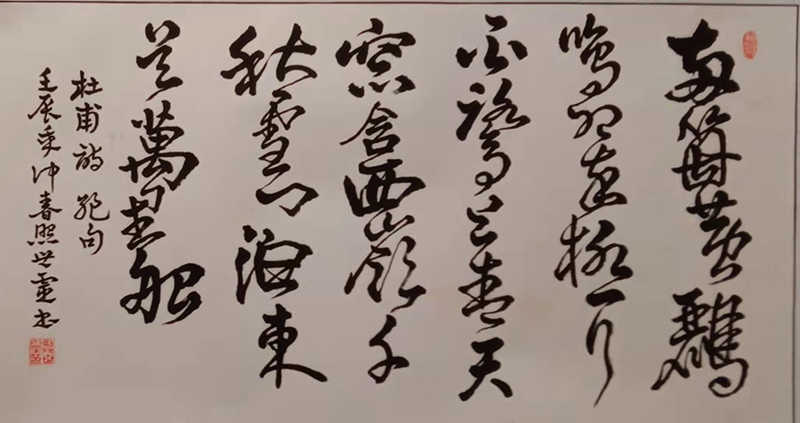 两箇黄鹂
鸣翠柳一行
白鹭上青天
窗含西岭千
秋雪门泊東
吴萬里船
杜甫诗 绝句
壬辰秊仲春照世霊书